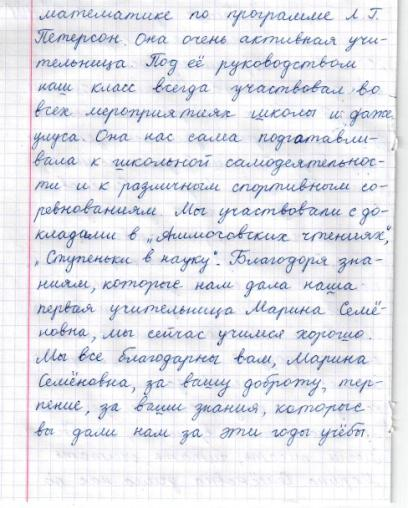 математике по программе Л.Г.
Петерсон. Она очень активная учи-
тельница. Под её руководством
наш класс всегда участвовал во
всех мероприятиях школы и даже
улуса. Она нас сама подготавли-
вала к школьной самодеятельнос-
ти и к различным спортивным со-
ревнованиям. Мы участвовали с до-
кладами в „Алимосовских чтениях",
„Ступеньки в науку". Благодоря зна-
ниям, которые нам дала наша
первая учительница Марина Семё-
новна, мы сейчас учимся хорошо.
Мы все благодарны вам, Марина
Семёновна, за вашу доброту, тер-
пение, за ваши знания, которые
вы дали нам за эти годы учёбы.